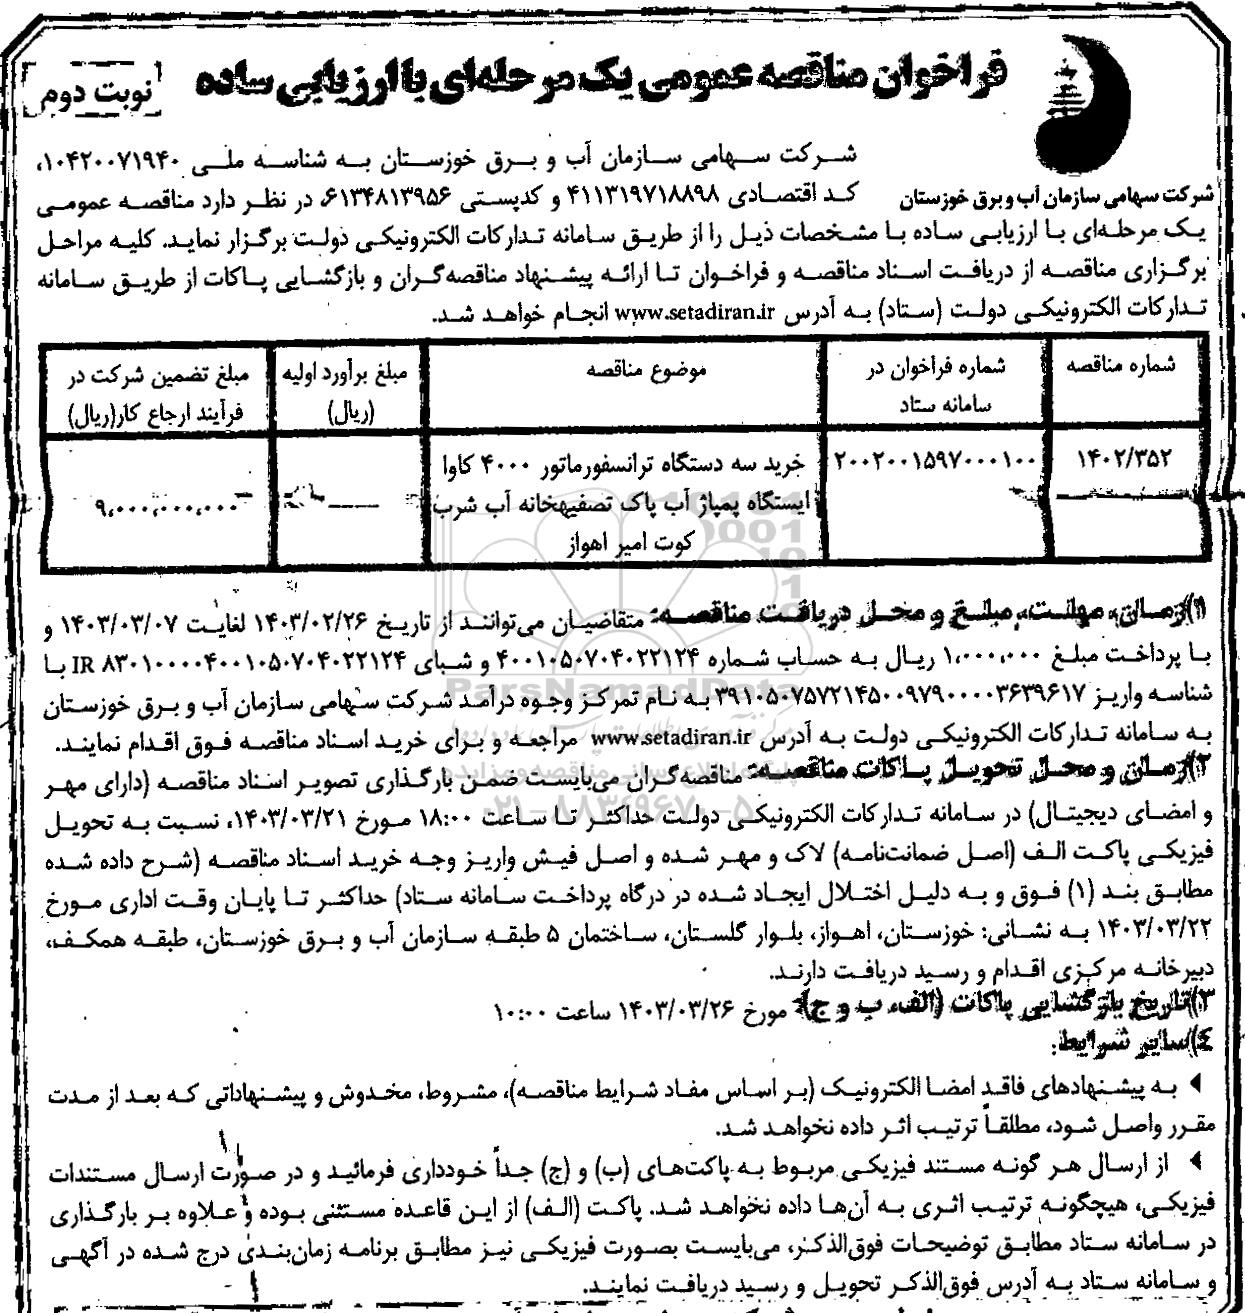 فراخوان مناقصه عمومی یک مرحله‌ای با ارزیابی ساده
نوبت دوم
شرکت سهامی سازمان آب و برق خوزستان
شرکت سهامی سازمان آب و برق خوزستان به شناسه ملی ۱۰۴۲۰۰۷۱۹۴۰،
کد اقتصادی ۴۱۱۳۱۹۷۱۸۸۹۸ و کدپستی ۶۱۳۴۸۱۳۹۵۶، در نظر دارد مناقصه عمومی
یک مرحله‌ای با ارزیابی ساده با مشخصات ذیل را از طریق سامانه تدارکات الکترونیکی دولت برگزار نماید. کلیه مراحل
برگزاری مناقصه از دریافت اسناد مناقصه و فراخوان تا ارائه پیشنهاد مناقصه‌گران و بازگشایی پاکات از طریق سامانه
تدارکات الکترونیکی دولت (ستاد) به آدرس www.setadiran.ir انجام خواهد شد.
شماره مناقصه
شماره فراخوان در
سامانه ستاد
موضوع مناقصه
مبلغ برآورد اولیه
(ریال)
مبلغ تضمین شرکت در
فرآیند ارجاع کار(ریال)
۱۴۰۲/۳۵۲
۲۰۰۲۰۰۱۵۹۷۰۰۰۱۰۰
خرید سه دستگاه ترانسفورماتور ۴۰۰۰ کاوا
ایستگاه پمپاژ آب پاک تصفیهخانه آب شرب
کوت امیر اهواز
۹،۰۰۰،۰۰۰،۰۰۰
۱)زمان، مهلت، مبلغ و محل دریافت مناقصه: متقاضیان می‌توانند از تاریخ ۱۴۰۳/۰۲/۲۶ لغایت ۱۴۰۳/۰۳/۰۷ و
با پرداخت مبلغ ۱،۰۰۰،۰۰۰ ریال به حساب شماره ۴۰۰۱۰۵۰۷۰۴۰۲۲۱۲۴ و شبای IR ۸۳۰۱۰۰۰۰۴۰۰۱۰۵۰۷۰۴۰۲۲۱۲۴ با
شناسه واریز ۳۹۱۰۵۰۷۵۷۲۱۴۵۰۰۹۷۹۰۰۰۰۳۶۳۹۶۱۷ به نام تمرکز وجوه درآمد شرکت سهامی سازمان آب و برق خوزستان
به سامانه تدارکات الکترونیکی دولت به آدرس www.setadiran.ir مراجعه و برای خرید اسناد مناقصه فوق اقدام نمایند.
۲)زمان و محل تحویل پاکات مناقصه: مناقصه‌گران می‌بایست ضمن بارگذاری تصویر اسناد مناقصه (دارای مهر
و امضای دیجیتال) در سامانه تدارکات الکترونیکی دولت حداکثر تا ساعت ۱۸:۰۰ مورخ ۱۴۰۳/۰۳/۲۱، نسبت به تحویل
فیزیکی پاکت الف (اصل ضمانت‌نامه) لاک و مهر شده و اصل فیش واریز وجه خرید اسناد مناقصه (شرح داده شده
مطابق بند (۱) فوق و به دلیل اختلال ایجاد شده در درگاه پرداخت سامانه ستاد) حداکثر تا پایان وقت اداری مورخ
۱۴۰۳/۰۳/۲۲ به نشانی: خوزستان، اهواز، بلوار گلستان، ساختمان ۵ طبقه سازمان آب و برق خوزستان، طبقه همکف،
دبیرخانه مرکزی اقدام و رسید دریافت دارند.
۳)تاریخ بازگشایی پاکات (الف، ب و ج): مورخ ۱۴۰۳/۰۳/۲۶ ساعت ۱۰:۰۰
۴)سایر شرایط:
به پیشنهادهای فاقد امضا الکترونیک (بر اساس مفاد شرایط مناقصه)، مشروط، مخدوش و پیشنهاداتی که بعد از مدت
مقرر واصل شود، مطلقاً ترتیب اثر داده نخواهد شد.
از ارسال هر گونه مستند فیزیکی مربوط به پاکت‌های (ب) و (ج) جداً خودداری فرمائید و در صورت ارسال مستندات
فیزیکی، هیچگونه ترتیب اثری به آن‌ها داده نخواهد شد. پاکت (الف) از این قاعده مستثنی بوده و علاوه بر بارگذاری
در سامانه ستاد مطابق توضیحات فوق‌الذکر، می‌بایست بصورت فیزیکی نیز مطابق برنامه زمان‌بندی درج شده در آگهی
و سامانه ستاد به آدرس فوق‌الذکر تحویل و رسید دریافت نمایند.
ParsNamadData
۰۲۱-۸۸۳۴۹۶۷۰-۵